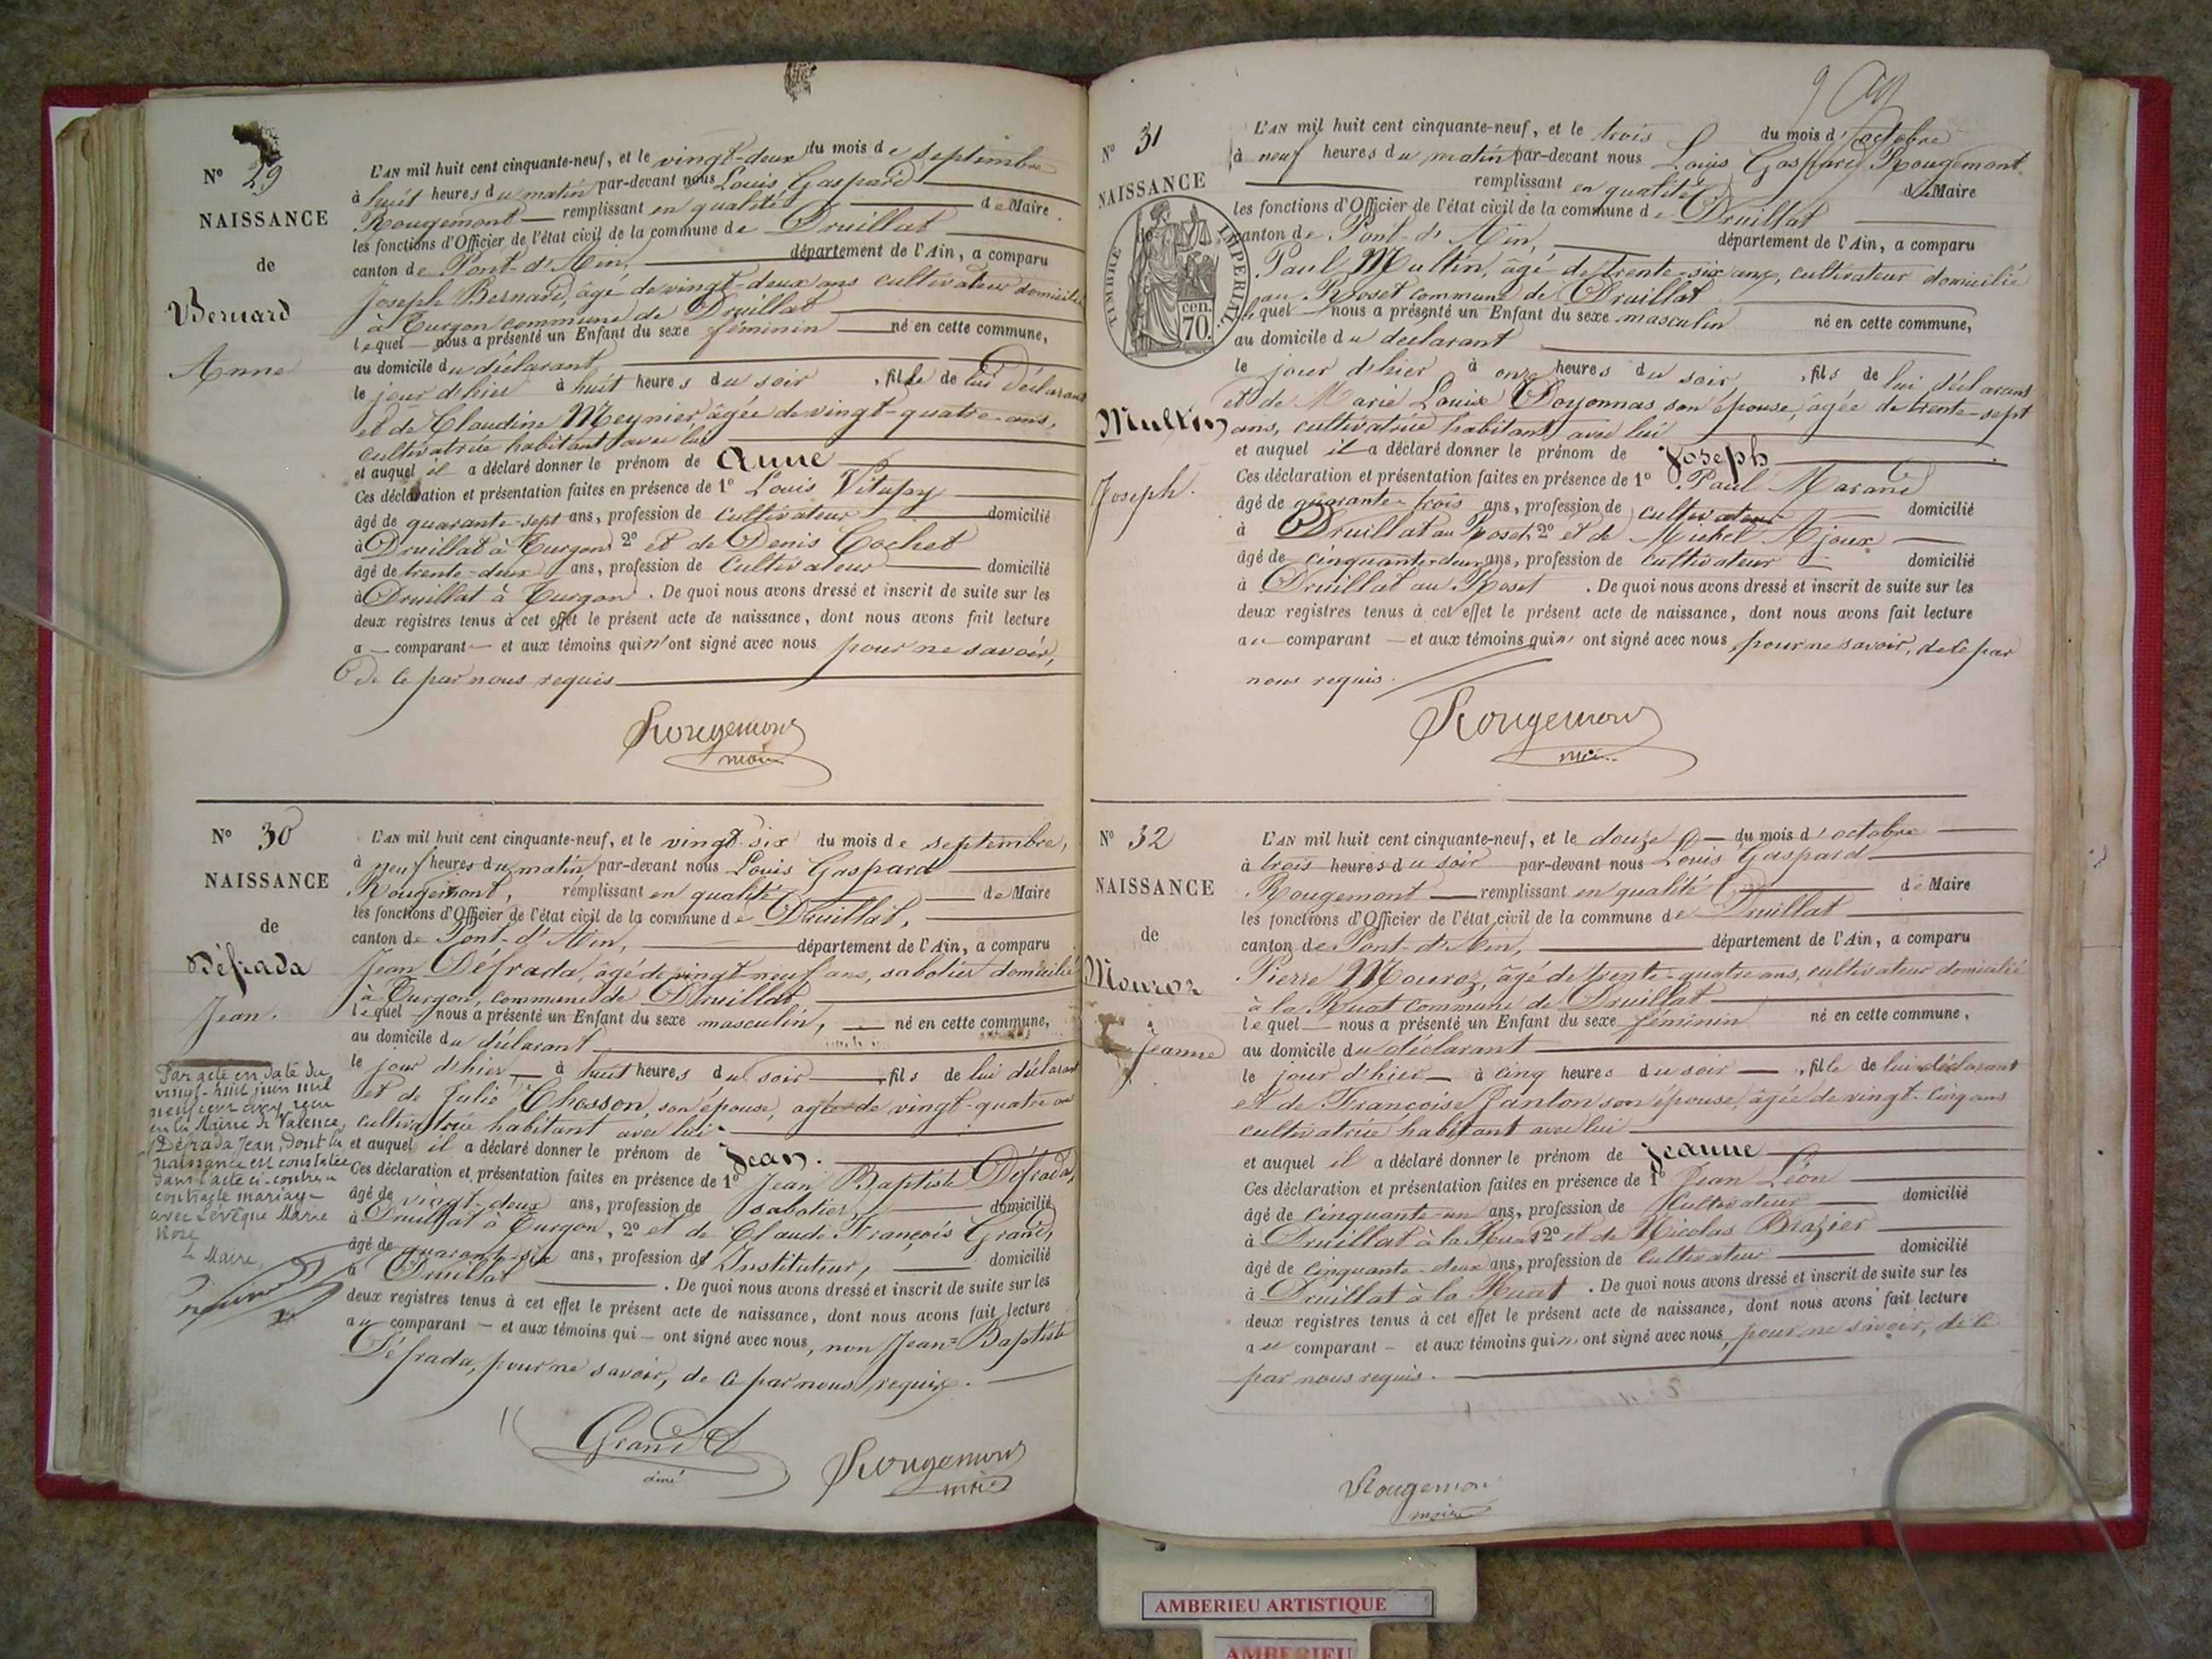 N° 29
NAISSANCE
de
Bernard
Anne
L'AN mil huit cent cinquante-neuf, et le vingt-deux du mois de septembre
à huit heures du matin par-devant nous Louis Gaspard
Rougemont remplissant en qualité de Maire
les fonctions d'Officier de l'état civil de la commune de Druillat
canton de Pont-d'Ain, département de l'Ain, a comparu
Joseph Bernard, âgé de vingt-deux ans cultivateur domicilié
à Turgon commune de Druillat
lequel nous a présenté un Enfant du sexe féminin né en cette commune,
au domicile du déclarant
le jour d'hier à huit heures du soir, fille de lui déclarant
et de Claudine Meynier, âgée de vingt-quatre ans,
cultivatrice habitant avec lui
et auquel il a déclaré donner le prénom de Anne
Ces déclaration et présentation faites en présence de 1° Louis Vitupy
âgé de quarante-sept ans, profession de cultivateur domicilié
à Druillat à Turgon 2° et de Denis Cochet
âgé de trente-deux ans, profession de Cultivateur domicilié
à Druillat à Turgon. De quoi nous avons dressé et inscrit de suite sur les
deux registres tenus à cet effet le présent acte de naissance, dont nous avons fait lecture
a comparant et aux témoins qui n'ont signé avec nous pour ne savoir,
de ce par nous requis
Rougemont
maire
N° 30
NAISSANCE
de
Défrada
Jean.
Par acte en date du
vingt-huit juin mil
neuf cent onze, reçu
en la Mairie de Valence,
Défrada Jean, dont la
naissance est constatée
dans l'acte ci-contre a
contracté mariage
avec Lévêque Marie
Rose
Le Maire,
L'AN mil huit cent cinquante-neuf, et le vingt-six du mois de septembre,
à neuf heures du matin, par-devant nous Louis Gaspard
Rougemont, remplissant en qualité de Maire
les fonctions d'Officier de l'état civil de la commune de Druillat,
canton de Pont-d'Ain, département de l'Ain, a comparu
Jean Défrada, âgé de vingt-neuf ans, sabotier domicilié
à Turgon, commune de Druillat
lequel nous a présenté un Enfant du sexe masculin, né en cette commune,
au domicile du déclarant
le jour d'hier à huit heures du soir, fils de lui déclarant
et de Julie Chosson, son épouse, agée de vingt-quatre ans
cultivatrice habitant avec lui
et auquel il a déclaré donner le prénom de Jean.
Ces déclaration et présentation faites en présence de 1° Jean Baptiste Défrada,
âgé de vingt-deux ans, profession de sabotier, domicilié
à Druillat à Turgon, 2° et de Claude François Grand,
âgé de quarante-six ans, profession d'Instituteur, domicilié
à Druillat. De quoi nous avons dressé et inscrit de suite sur les
deux registres tenus à cet effet le présent acte de naissance, dont nous avons fait lecture
au comparant et aux témoins qui ont signé avec nous, non Jean-Baptiste
Défrada, pour ne savoir, de ce par nous requis.
Grand
aîné
Rougemont
maire
N° 31
NAISSANCE
de
TIMBRE IMPERIAL
70 cen.
Multin
Joseph.
L'AN mil huit cent cinquante-neuf, et le trois du mois d'octobre
à neuf heures du matin par-devant nous Louis Gaspard Rougemont
remplissant en qualité de Maire
les fonctions d'Officier de l'état civil de la commune de Druillat
canton de Pont-d'Ain, département de l'Ain, a comparu
Paul Multin, âgé de trente-six ans, cultivateur domicilié
au Roset commune de Druillat
lequel nous a présenté un Enfant du sexe masculin né en cette commune,
au domicile du declarant
le jour d'hier à onze heures du soir, fils de lui déclarant
et de Marie Louise Doyonnas son épouse, âgée de trente-sept
ans, cultivatrice habitant avec lui
et auquel il a déclaré donner le prénom de Joseph
Ces déclaration et présentation faites en présence de 1° Paul Marand
âgé de quarante-trois ans, profession de cultivateur domicilié
à Druillat au Roset, 2° et de Michel Mjoux
âgé de cinquante-deux ans, profession de cultivateur domicilié
à Druillat au Roset. De quoi nous avons dressé et inscrit de suite sur les
deux registres tenus à cet effet le présent acte de naissance, dont nous avons fait lecture
au comparant et aux témoins qui n'ont signé avec nous pour ne savoir, de ce par
nous requis.
Rougemont
N° 32
NAISSANCE
de
Mouroz
Jeanne
L'AN mil huit cent cinquante-neuf, et le douze du mois d'octobre
à trois heures du soir par-devant nous Louis Gaspard
Rougemont remplissant en qualité de Maire
les fonctions d'Officier de l'état civil de la commune de Druillat
canton de Pont-d'Ain, département de l'Ain, a comparu
Pierre Mouroz, âgé de trente-quatre ans, cultivateur domicilié
à la Ruat commune de Druillat
lequel nous a présenté un Enfant du sexe féminin né en cette commune,
au domicile du déclarant
le jour d'hier à cinq heures du soir, fille de lui déclarant
et de Françoise Janton son épouse, âgée de vingt-cinq ans
cultivatrice habitant avec lui
et auquel il a déclaré donner le prénom de Jeanne
Ces déclaration et présentation faites en présence de 1° Jean Léon
âgé de cinquante-un ans, profession de Cultivateur domicilié
à Druillat à la Ruat 2° et de Nicolas Brazier
âgé de cinquante-deux ans, profession de Cultivateur domicilié
à Druillat à la Ruat. De quoi nous avons dressé et inscrit de suite sur les
deux registres tenus à cet effet le présent acte de naissance, dont nous avons fait lecture
au comparant et aux témoins qui n'ont signé avec nous, pour ne savoir, de ce
par nous requis.
Rougemont
maire
AMBERIEU ARTISTIQUE
AMBERIEU